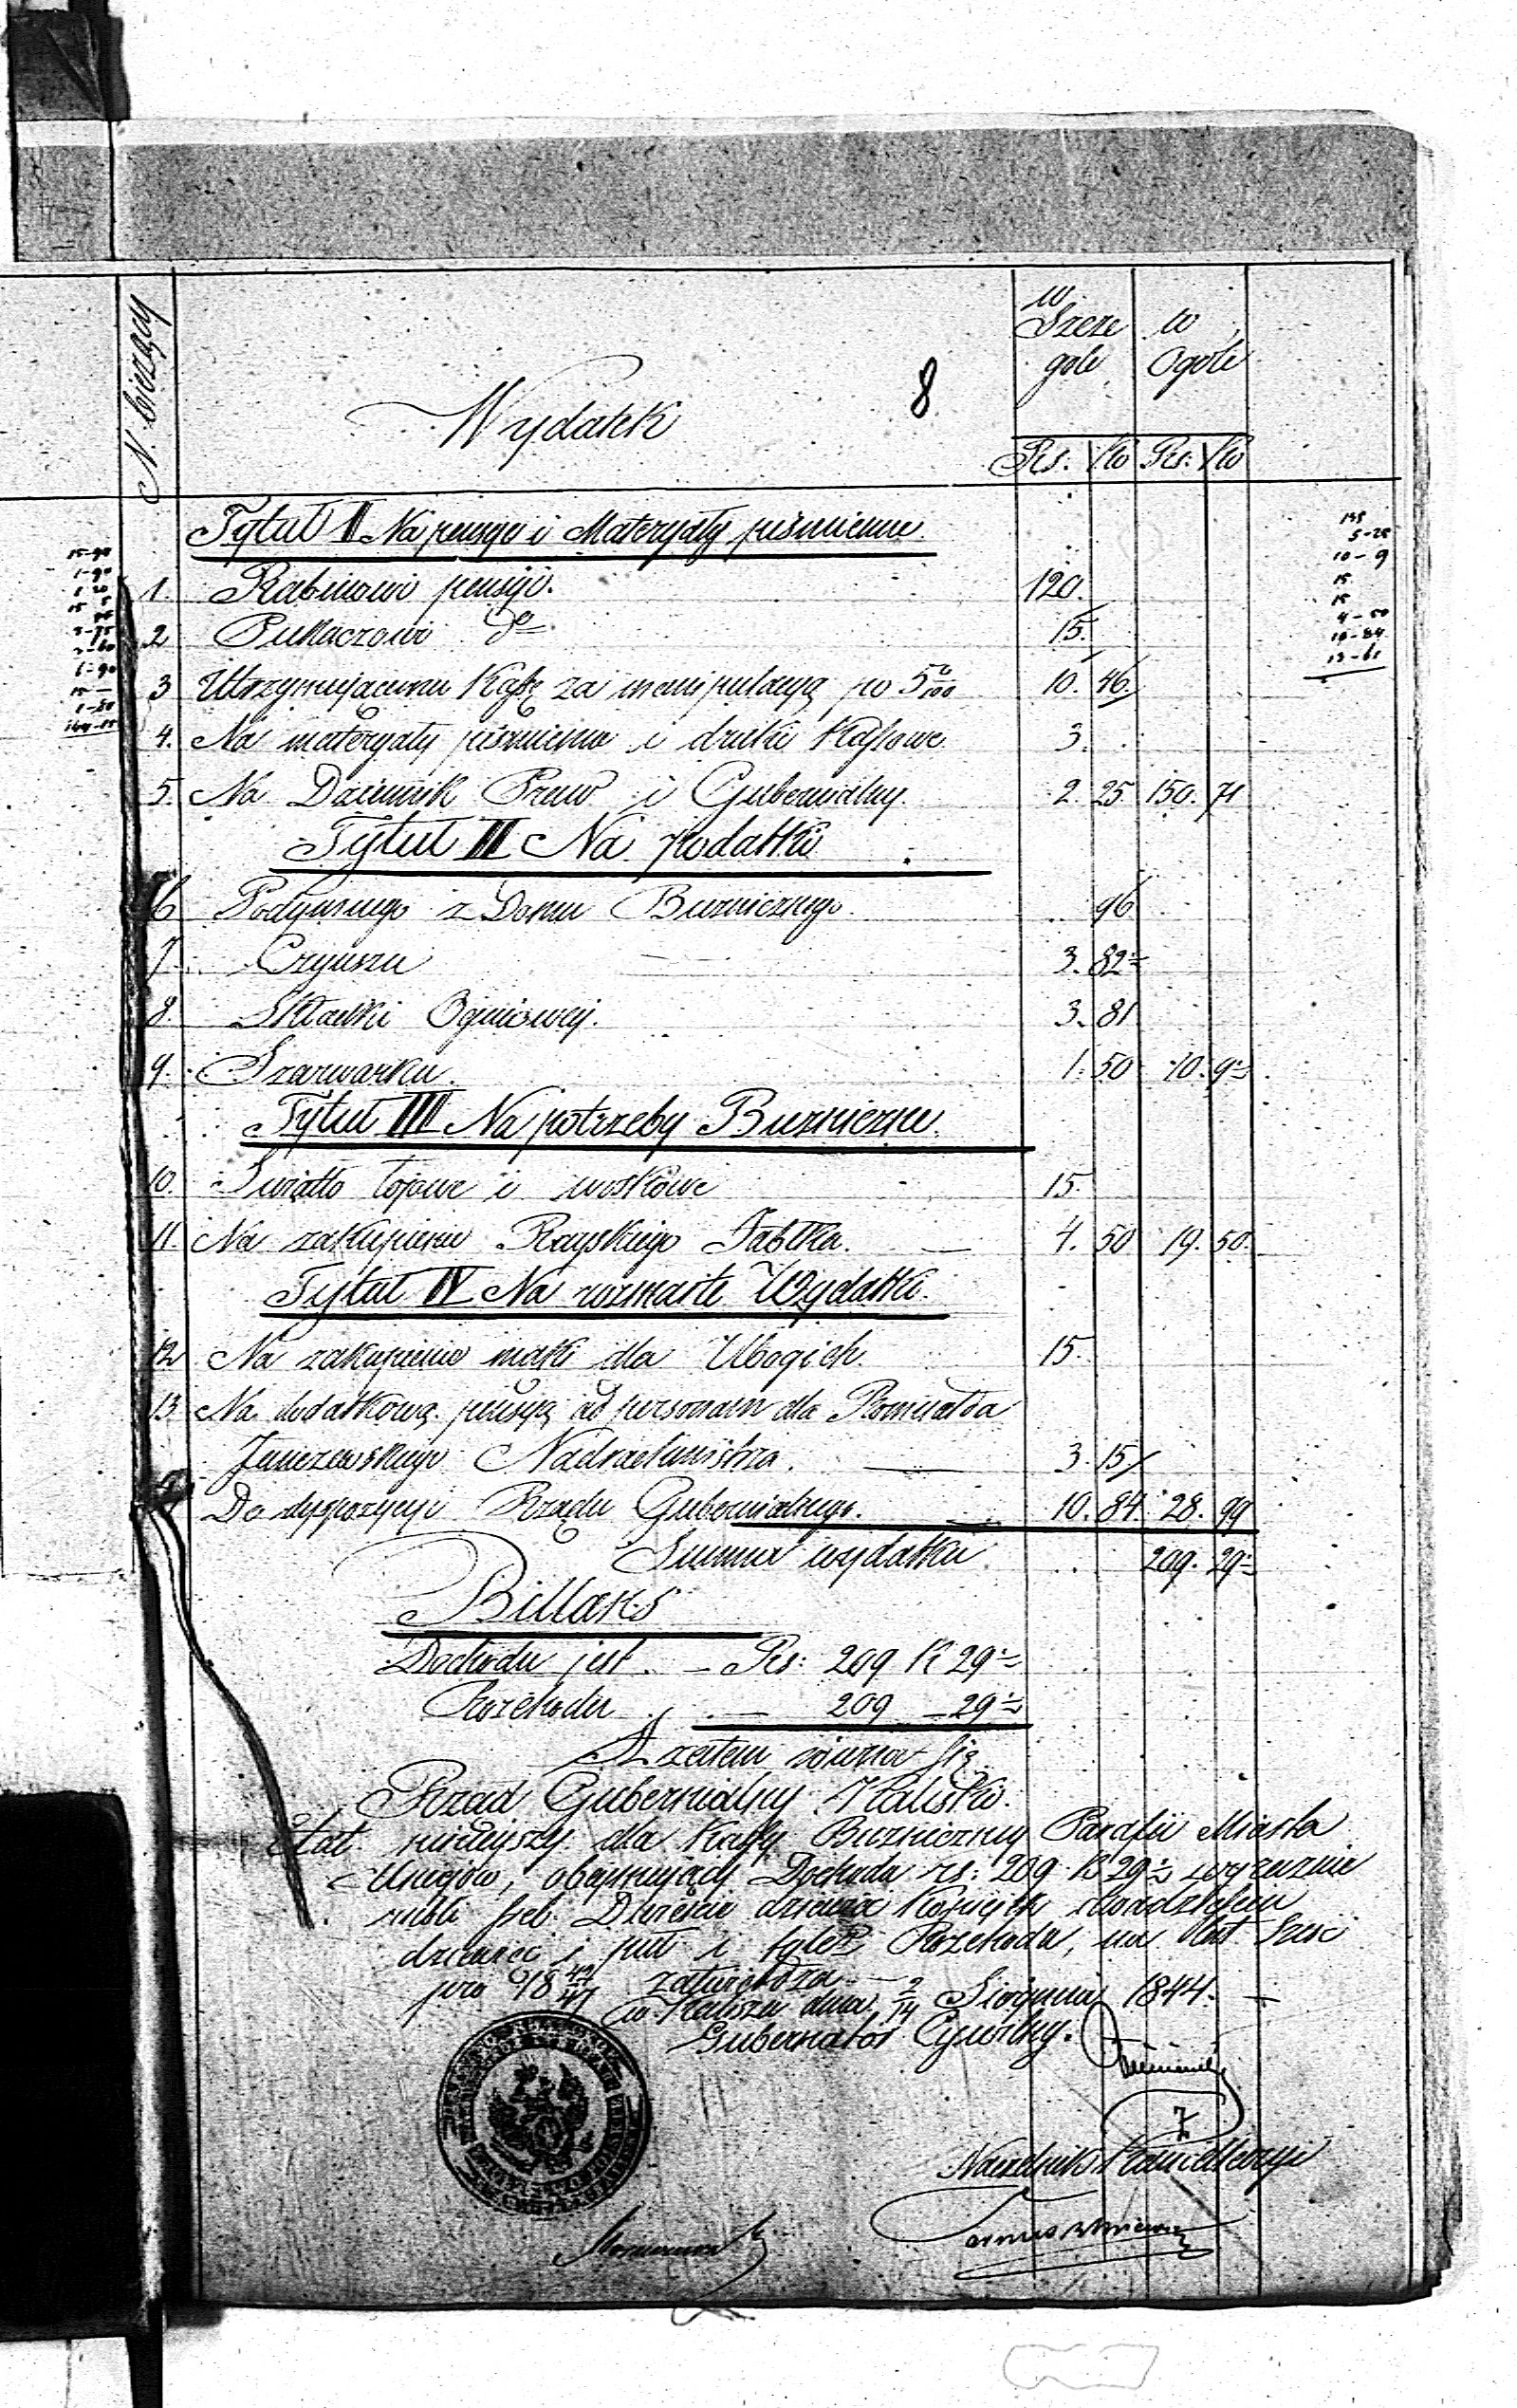 N. bieżący
Wydatek
8
w Szczególe
w Ogóle
Rs. Ko Rs: Ko
Tytuł I Na pensye i Materyały piśmienne
1. Rabinowi pensyi. 120.
2 Pukaczowi do 15.
3 Utrzymującemu Kassę za manipulacyą po 5 0/100 10. 46.
4. Na materyały piśmienne i druki Kassowe 3.
5. Na Dziennik Praw i Gubernialny. 2. 25 150. 71
Tytuł II Na podatki
6 Podymnego z Domu Buzniczego. 96
7. Czynszu 3. 82½
8. Składki Ogniowej. 3. 81
9. Szarwarku. 1. 50 10. 9½
Tytuł III Na potrzeby Buzniczne.
10. Światło łojowe i woskowe 15.
11. Na zakupienie Rayskiego Jabłka. — 4. 50 19. 50.
Tytuł IV Na rozmaite Wydatki.
12 Na zakupienie mąki dla Ubogich. 15.
13 Na dodatkową pensyą ad personam dla Romualda
Nadrachmistrza. — 3. 15
Do dyspozycyi Rządu Gubernialnego. — 10. 84. 28. 99
Summa wydatku 209. 29½
Billans
Dochodu jest. — Rs: 209 K 29½
Rozchodu — 209 — 29½
A zatem równa się
Rząd Gubernialny Kaliski.
Etat niniejszy dla Kassy Buzniczney Parafii Miasta
Uniejów, obejmujący Dochodu rs: 209 K 29½ wyraźnie
rubli sreb. Dwieście dziewięć Kopiejek dwadzieścia
dziewięć i puł i tyleż Rozchodu, na lat sześć
pro 18 42/47 zatwierdza —
w Kaliszu dnia 2/14 Stycznia 1844. —
Gubernator Cywilny.
Naczelnik Kancellaryi